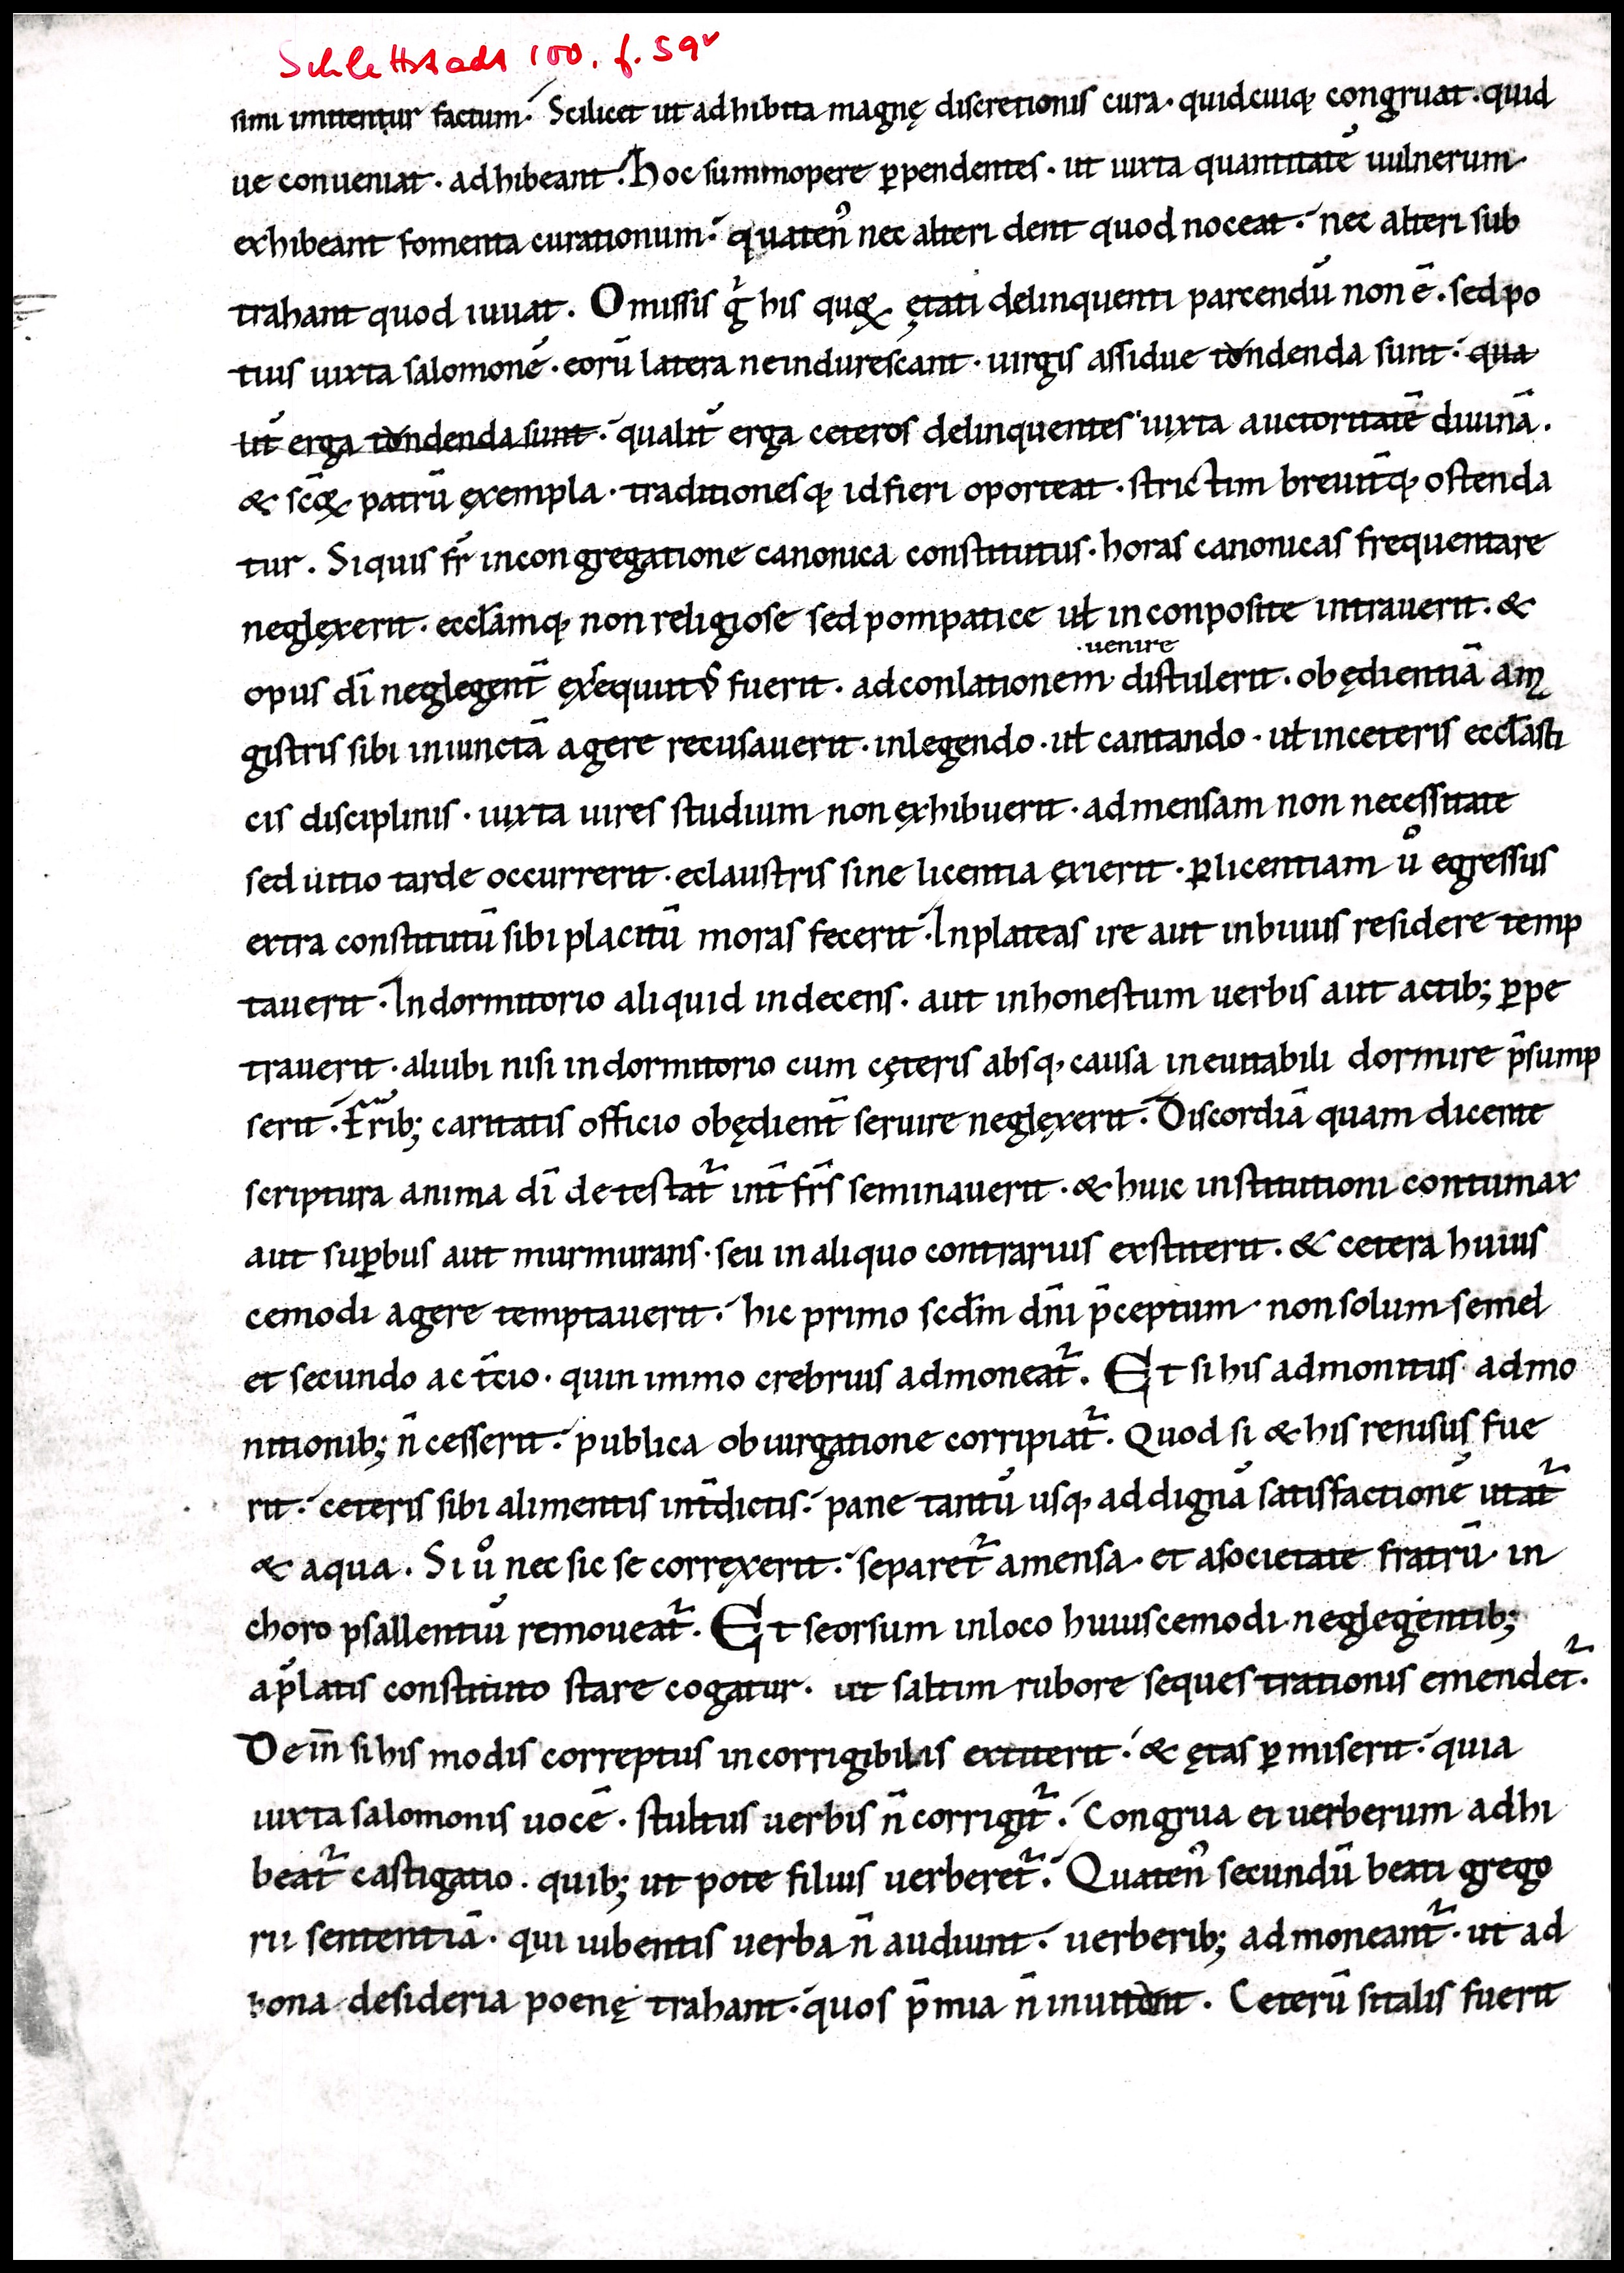 Schlettstadt 100, f. 59v
simi imitentur factum. Scilicet ut adhibita magnę discretionis cura. quid cuiq; congruat. quid
ue conueniat. adhibeant. Hoc summopere ꝑpendentes. ut iuxta quantitatē uulnerum
exhibeant fomenta curationum. quatenꝰ nec alteri dent quod noceat. nec alteri sub
trahant quod iuuat. Omissis gͥ his quęꝝ ętati delinquenti parcendū non ē. sed po
tius iuxta salomonē. eorū latera ne indurescant. uirgis assidue tondenda sunt. qua
lit̄ erga tondenda sunt. qualit̄ erga ceteros delinquentes iuxta auctoritatē diuinā.
& sc̄oꝝ patrū exempla. traditionesq; id fieri oporteat. strictim breuit̄q; ostenda
tur. Siquis fr̄ in congregatione canonica constitutus. horas canonicas frequentare
neglexerit. eccl̄amq; non religiose sed pompatice ut̵ inconposite intrauerit. &
opus dī neglegent̄ exequutꝰ fuerit. ad conlationem uenire distulerit. obędientiā a m̄
gistris sibi iniunctā agere recusauerit. in legendo. ul̵ cantando. ul̵ in ceteris eccl̄asti
cis disciplinis. iuxta uires studium non exhibuerit. ad mensam non necessitate
sed uitio tarde occurrerit. e claustris sine licentia exierit. ꝑ licentiam uͦ egressus
extra constitutū sibi placitū moras fecerit. In plateas ire aut in biuiis residere temp
tauerit. In dormitorio aliquid indecens. aut inhonestum uerbis aut actib; ꝑpe
trauerit. aliubi nisi in dormitorio cum cęteris absq; causa ineuitabili dormire p̄sump
serit. Fr̄ib; caritatis officio obędient̄ seruire neglexerit. Discordiā quam dicente
scriptura anima dī detestat᷑ int̄ fr̄s seminauerit. & huic institutioni contumax
aut suꝑbus aut murmurans. seu in aliquo contrarius exstiterit. & cetera huius
cemodi agere temptauerit. hic primo scd̄m dn̄i p̄ceptum non solum semel
et secundo ac t̄cio. quin immo crebrius admoneat᷑. Et si his admonitus admo
nitionib; n̄ cesserit. publica obiurgatione corripiat᷑. Quod si & his renisus fue
rit. ceteris sibi alimentis int̄dictis. pane tantū usq; ad dignā satisfactionē utat᷑
& aqua. Si uͦ nec sic se correxerit. separet᷑ a mensa. et a societate fratrū. in
choro psallentiū remoueat᷑. Et seorsum in loco huiuscemodi neglegentib;
a p̄latis constituto stare cogatur. ut saltim rubore sequestrationis emendet᷑.
Dein̄ si his modis correptus incorrigibilis extiterit. & ętas ꝑmiserit. quia
iuxta salomonis uocē. stultus uerbis n̄ corrigit᷑. Congrua ei uerberum adhi
beat᷑ castigatio. quib; ut pote filius uerberet᷑. Quatenꝰ secundū beati grego
rii sententiā. qui iubentis uerba n̄ audiunt. uerberib; admoneant᷑. ut ad
bona desideria poenę trahant. quos p̄mia n̄ inuitant. Ceterū si talis fuerit